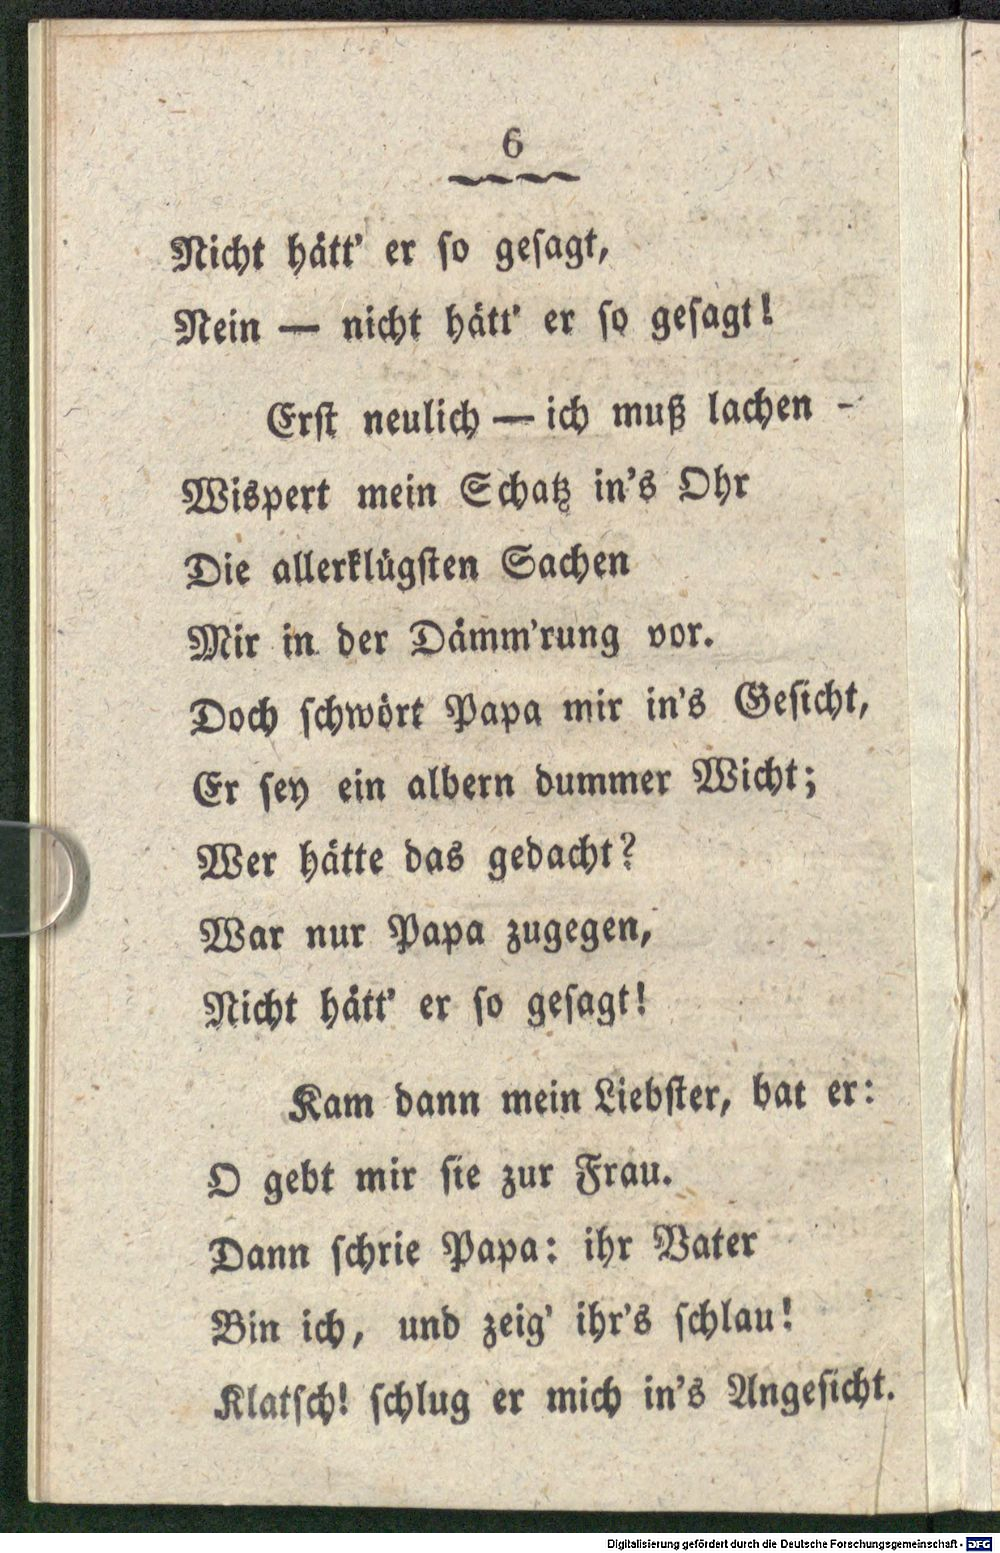 6
Nicht hått' er so gesagt,
Nein — nicht hått' er so gesagt!
Erst neulich — ich muß lachen -
Wispert mein Schatz in's Ohr
Die allerklügsten Sachen
Mir in der Dämm'rung vor.
Doch schwört Papa mir in's Gesicht,
Er sey ein albern dummer Wicht;
Wer hätte das gedacht?
War nur Papa zugegen,
Nicht hätt' er so gesagt!
Kam dann mein Liebster, bat er:
O gebt mir sie zur Frau.
Dann schrie Papa: ihr Vater
Bin ich, und zeig' ihr's schlau!
Klatsch! schlug er mich in's Angesicht.
Digitalisierung gefördert durch die Deutsche Forschungsgemeinschaft - DFG